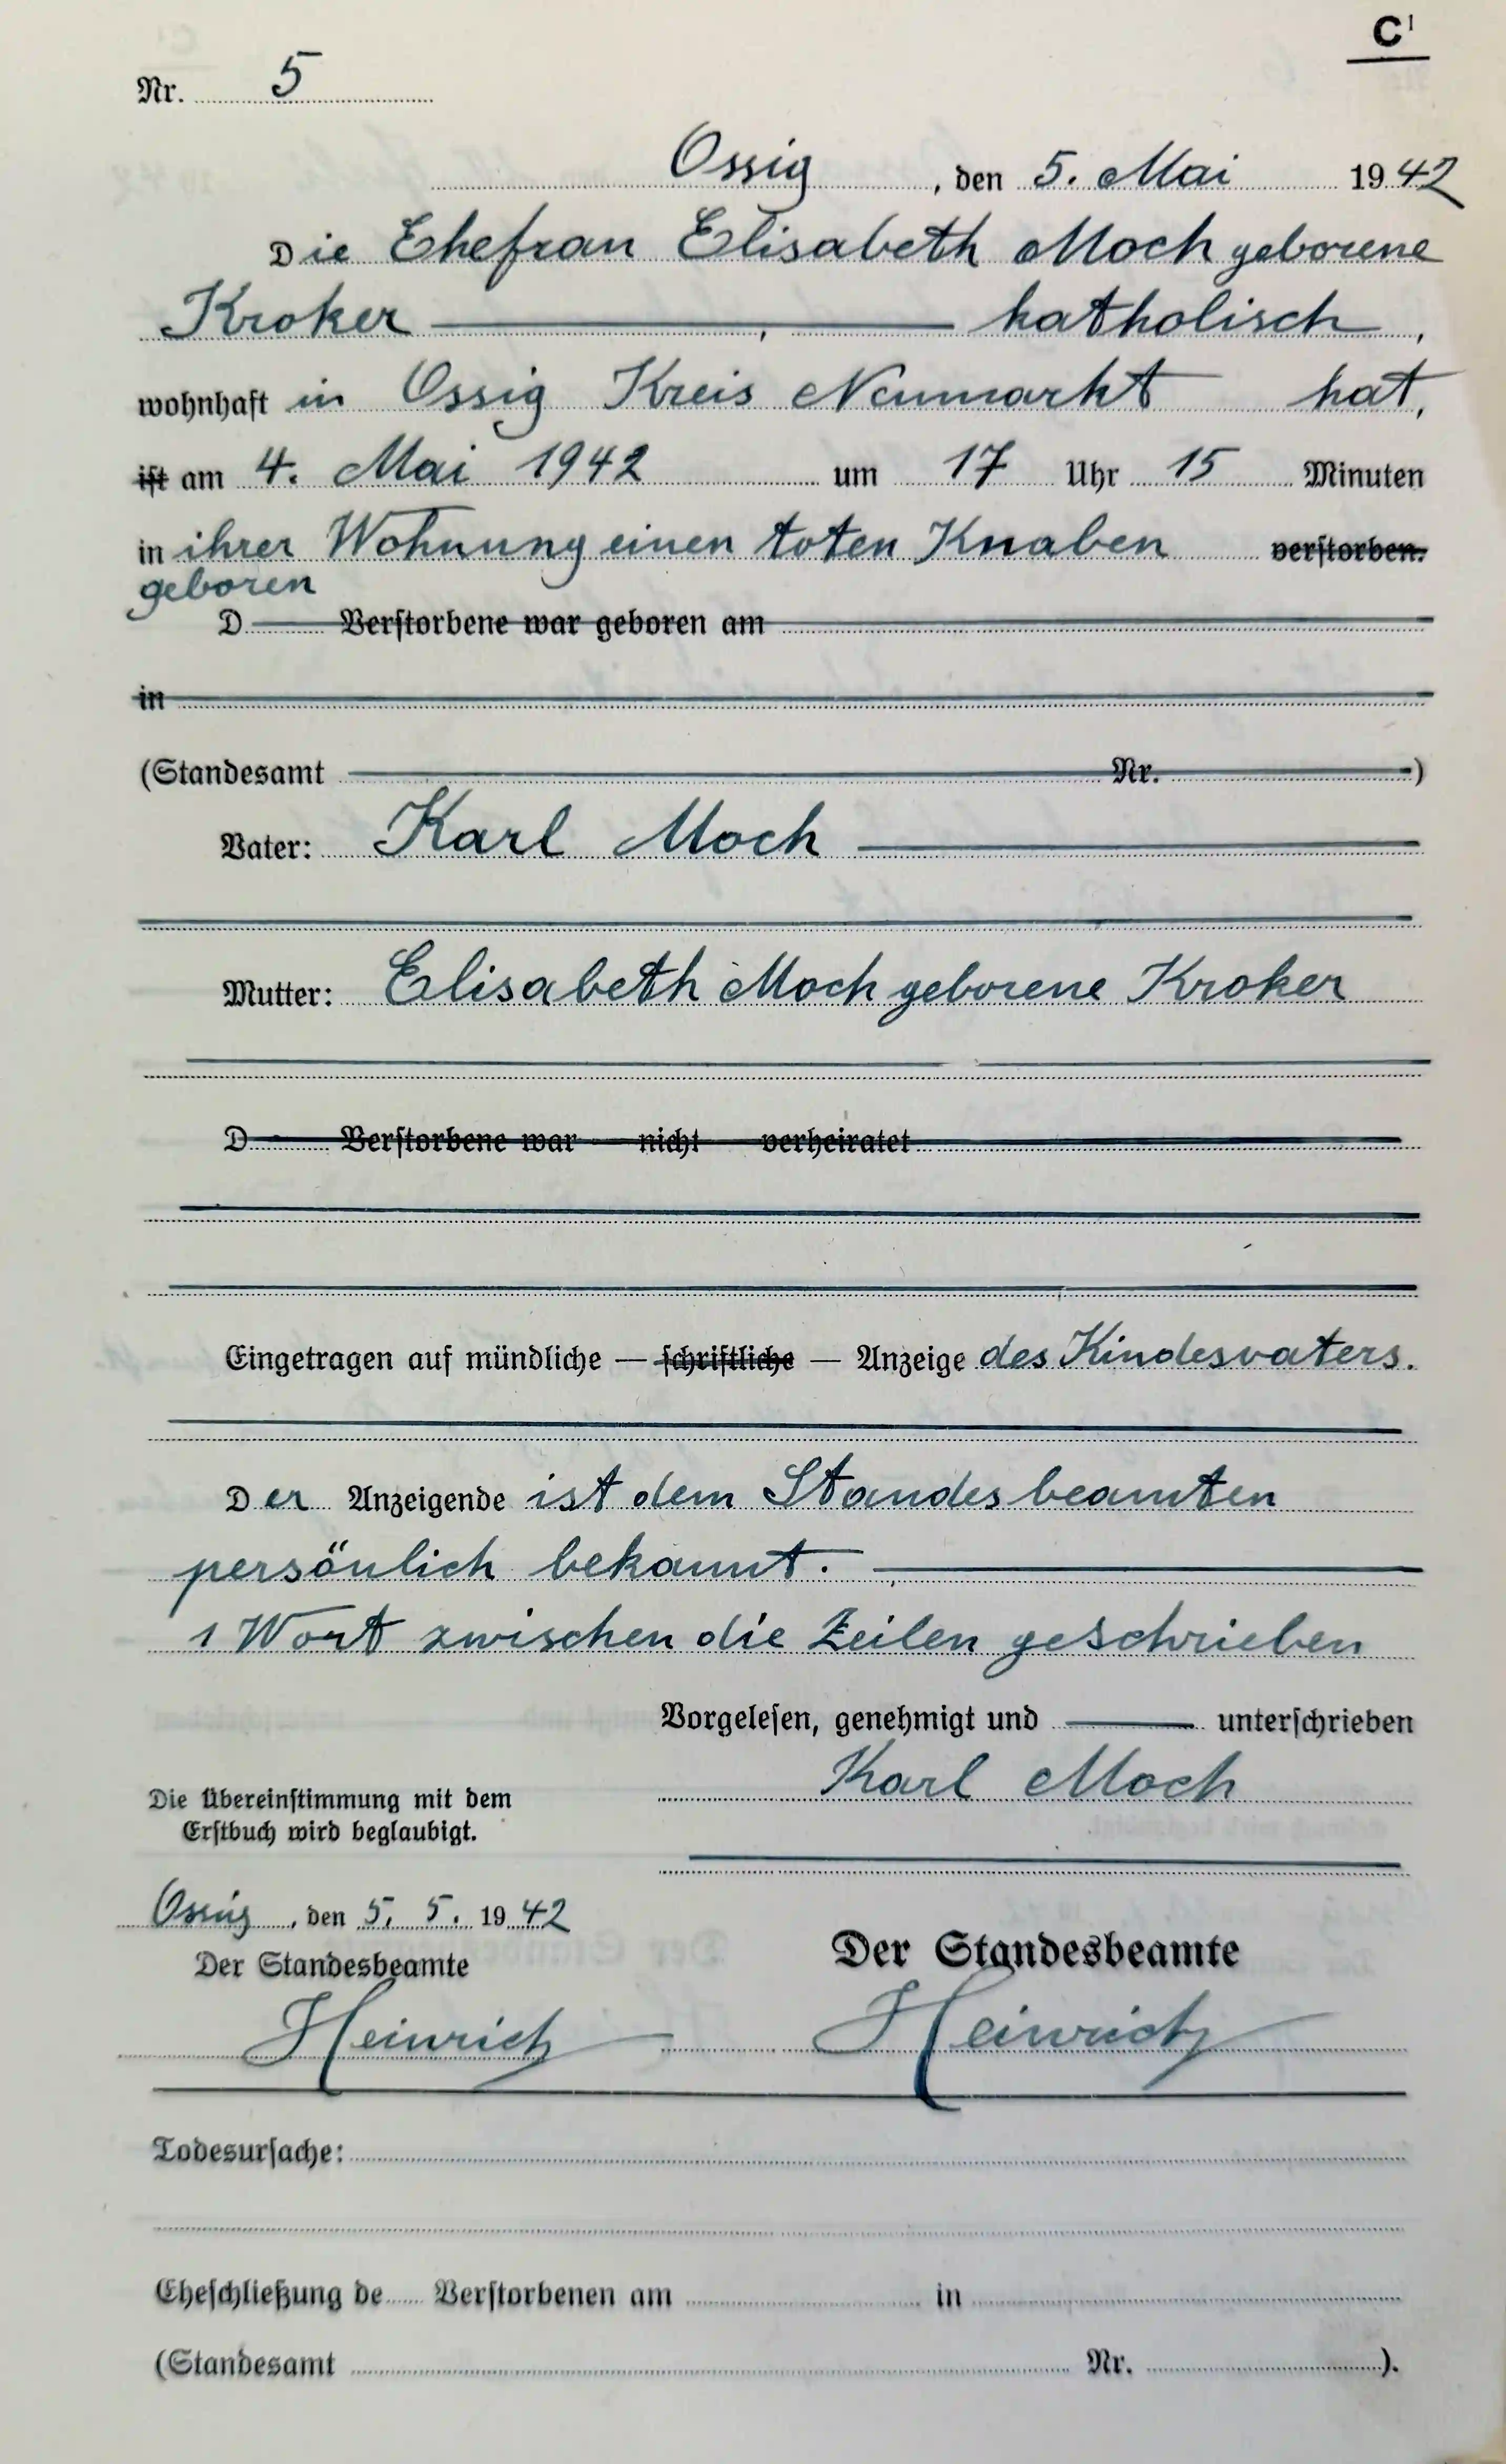 C¹
Nr. 5
Ossig, den 5. Mai 1942
Die Ehefrau Elisabeth Moch geborene
Kroker, katholisch,
wohnhaft in Ossig Kreis Neumarkt hat,
ist am 4. Mai 1942 um 17 Uhr 15 Minuten
in ihrer Wohnung einen toten Knaben verstorben.
geboren
D Verstorbene war geboren am
in
(Standesamt Nr. )
Vater: Karl Moch
Mutter: Elisabeth Moch geborene Kroker
D Verstorbene war nicht verheiratet
Eingetragen auf mündliche — schriftliche — Anzeige des Kindesvaters.
Der Anzeigende ist dem Standesbeamten
persönlich bekannt.
1 Wort zwischen die Zeilen geschrieben
Vorgelesen, genehmigt und unterschrieben
Karl Moch
Die Übereinstimmung mit dem
Erstbuch wird beglaubigt.
Ossig, den 5. 5. 1942
Der Standesbeamte
Heinrich
Der Standesbeamte
Heinrich
Todesursache:
Eheschließung de Verstorbenen am in
(Standesamt Nr. ).